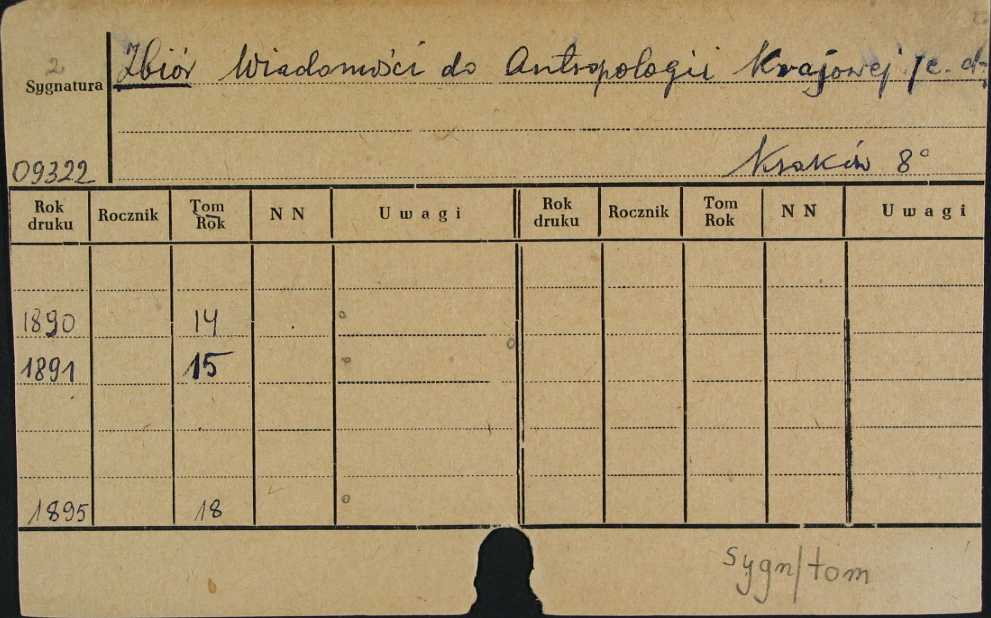 2 Zbiór Wiadomości do Antropologii Krajowej /c.d.
Sygnatura
09322 Kraków 8°
Rok druku Rocznik Tom Rok N N Uwagi Rok druku Rocznik Tom Rok N N Uwagi
1890 14 °
1891 15 °
1895 18 °
sygn/tom